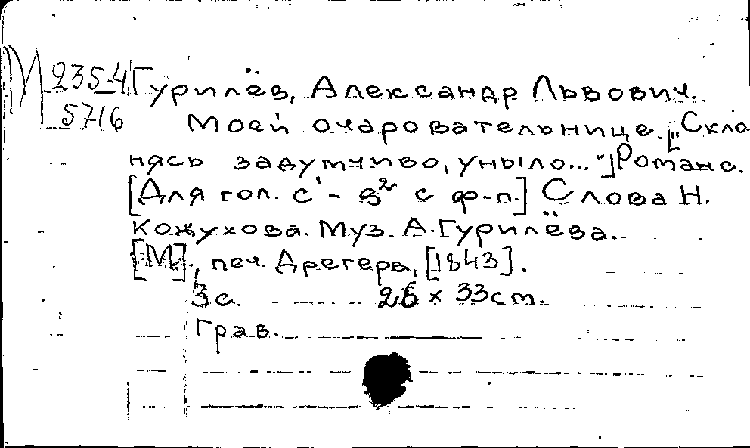 М 235-4 Гурилёв, Александр Львович.
5716 Моей очаровательнице. ["Скло
нясь задумчиво, уныло..."] Романс.
[Для гол. с¹ - g² с ф-п.] Слова Н.
Кожухова. Муз. А. Гурилёва.
[М.], печ. Дрегера, [1843].
3 с. 26 × 33 cm.
Грав.